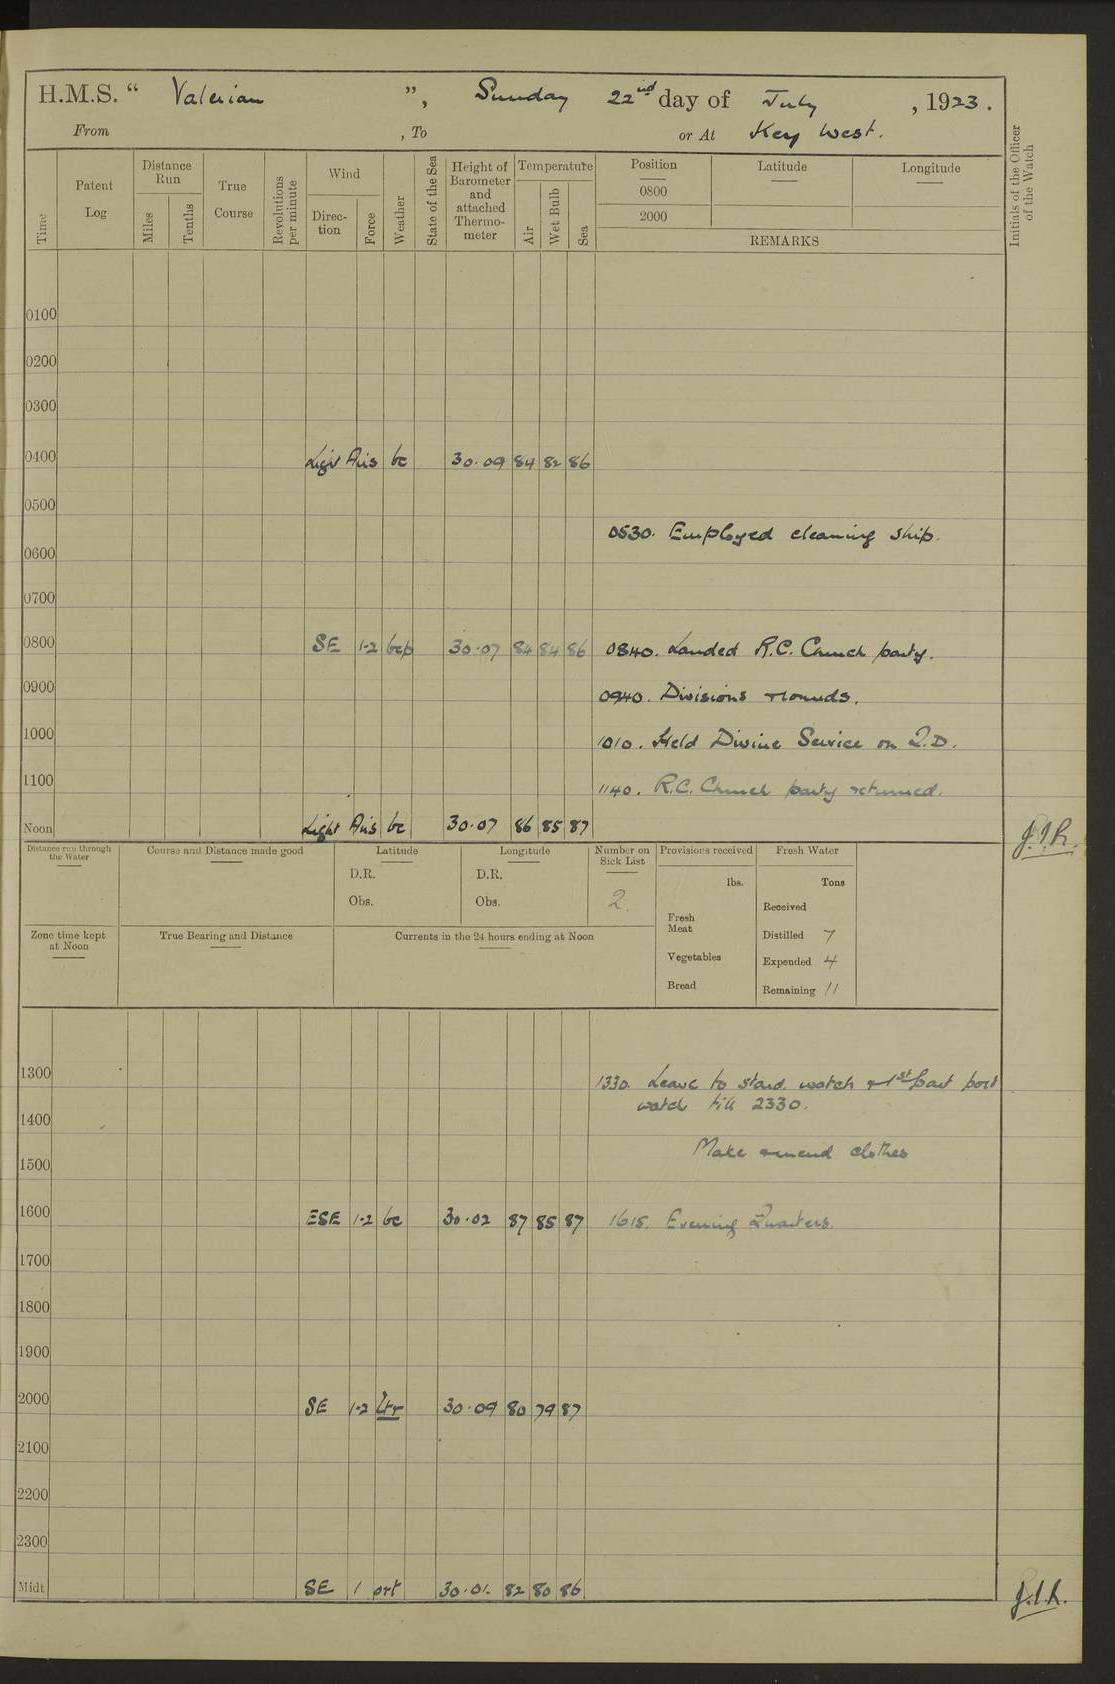 H.M.S. “ Valerian ”, Sunday 22nd day of July, 1923.
From , To or At Key West.
Time
Patent Log
Distance Run
Miles
Tenths
True Course
Revolutions per minute
Wind
Direc-tion
Force
Weather
State of the Sea
Height of Barometer and attached Thermo-meter
Temperature
Air
Wet Bulb
Sea
Position
Latitude
Longitude
0800
2000
REMARKS
Initials of the Officer of the Watch
0100
0200
0300
0400 Light Airs bc 30.09 84 82 86
0500
0530. Employed cleaning ship.
0600
0700
0800 SE 1-2 bcp 30.07 84 84 86 0840. Landed R.C. Church party.
0900 0940. Divisions & rounds.
1000 1010. Held Divine Service on Q.D.
1100 1140. R.C. Church party returned.
Noon Light Airs bc 30.07 86 85 87
Distance run through the Water
Course and Distance made good
Latitude
D.R.
Obs.
Longitude
D.R.
Obs.
Number on Sick List
2.
Provisions received
lbs.
Fresh Meat
Vegetables
Bread
Fresh Water
Tons
Received
Distilled 7
Expended 4
Remaining 11
Zone time kept at Noon
True Bearing and Distance
Currents in the 24 hours ending at Noon
1300 1330. Leave to starb. watch & 1st part port
watch till 2330.
1400
Make & mend clothes
1500
1600 ESE 1-2 bc 30.02 87 85 87 1615. Evening Quarters.
1700
1800
1900
2000 SE 1-2 ltr 30.09 80 79 87
2100
2200
2300
Midt SE 1 ort 30.01. 82 80 86